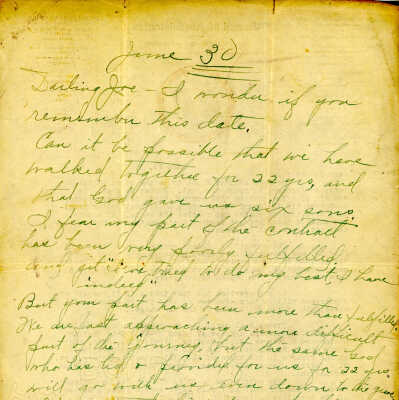 June 30
Darling Joe - I wonder if you
remember this date.
Can it be possible that we have
walked together for 22 yrs, and
that God gave us six sons.
I fear my part of the contract
has been very poorly fulfilled
and yet "I've tried to do my best, I have
indeed"
But your part has been more than fulfilled.
We are fast approaching a more difficult
part of the journey, but the same God
who has led & provided for us for 22 yrs,
will go with us even down to the